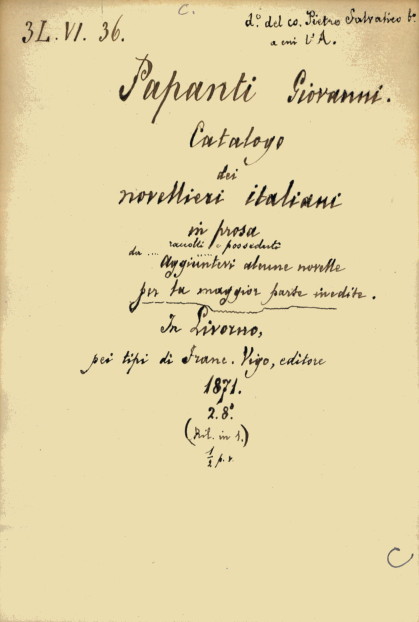 C.
3L. VI. 36.
d.º del co. Pietro Salvatico
a cui l'A.
Papanti Giovanni.
Catalogo
dei
novellieri italiani
in prosa
raccolti e posseduti
da ...
Aggiuntevi alcune novelle
per la maggior parte inedite.
In Livorno,
pei tipi di Franc. Vigo, editore
1871.
2. 8º.
(Ril. in 1.)
½ p. r.
C